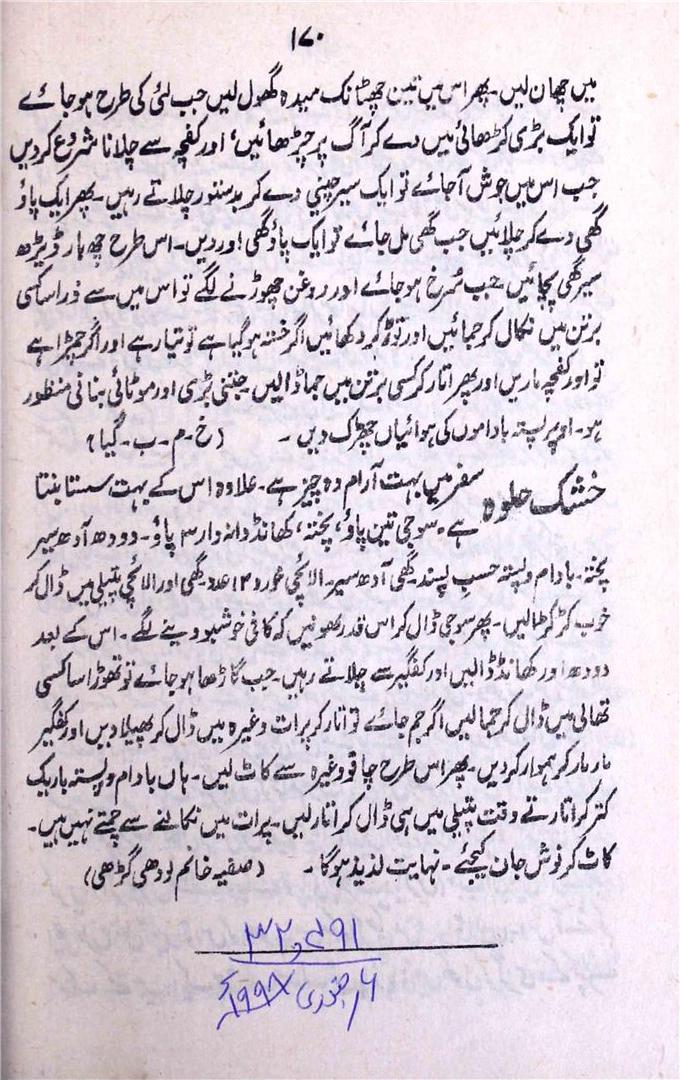 ۱۷۰
میں چھان لیں۔ پھر اس میں تین چھٹانک میدہ گھول لیں جب لئی کی طرح ہو جائے
تو ایک بڑی کڑھائی میں دے کر آگ پر چڑھائیں، اور کفچہ سے چلانا شروع کر دیں
جب اس میں جوش آجائے تو ایک سیر چینی دے کر بدستور چلاتے رہیں۔ پھر ایک پاؤ
گھی دے کر چلائیں جب گھی مل جائے تو ایک پاؤ گھی اور دیں۔ اس طرح چھ بار ڈیڑھ
سیر گھی پچائیں۔ جب سُرخ ہو جائے اور روغن چھوڑنے لگے تو اس میں سے ذرا سا کسی
برتن میں نکال کر جمائیں اور توڑ کر دکھائیں اگر خستہ ہو گیا ہے تو تیار ہے اور اگر چمڑا ہے
تو اور کفچہ ماریں اور پھر اتار کر کسی برتن میں جما ڈالیں۔ جتنی بڑی اور موٹائی بنانی منظور
ہو۔ اوپر پستہ باداموں کی ہوائیاں چھڑک دیں۔ (خ۔م۔ب۔گیا)
خشک حلوہ سفر میں بہت آرام دہ چیز ہے۔ علاوہ اس کے بہت سستا بنتا
ہے۔ سوجی تین پاؤ، پختہ، کھانڈ دانہ دار ۳ پاؤ۔ دودھ آدھ سیر
پختہ۔ بادام و پستہ حسبِ پسند۔ گھی آدھ سیر۔ الائچی خورد ۱۲ عدد۔ گھی اور الائچی پتیلی میں ڈال کر
خوب کڑکڑا لیں۔ پھر سوجی ڈال کر اس قدر بھونیں کہ کافی خوشبو دینے لگے۔ اس کے بعد
دودھ اور کھانڈ ڈالیں اور کفگیر سے چلاتے رہیں۔ جب گاڑھا ہو جائے تو تھوڑا سا کسی
تھالی میں ڈال کر جما لیں اگر جم جائے تو اتار کر پرات وغیرہ میں ڈال کر پھیلا دیں اور کفگیر
مار مار کر ہموار کر دیں۔ پھر اس طرح چاقو وغیرہ سے کاٹ لیں۔ ہاں بادام و پستہ باریک
کتر کر اتارتے وقت پتیلی میں ہی ڈال کر اتار لیں۔ پرات میں نکالنے سے جمتے نہیں ہیں۔
کاٹ کر نوش جان کیجئے۔ نہایت لذیذ ہو گا۔ (صفیہ خانم لودھی گڑھی)
جنوری ۱۹۹۸ء